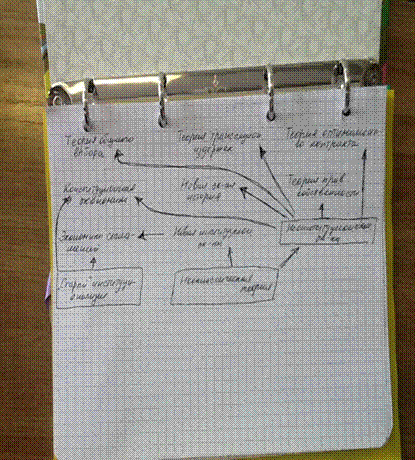 Теория общего
выбора
Теория трансакцион
издержек
Теория оптимально-
го контракта
Конституционная
экономика
Новая эк-ая
история
Теория прав
собственности
Экономика согла-
шений
Новая институцион
эк-ка
Неоинституциональная
эк-ка
Старый институ-
ционализм
Неоклассическая
теория